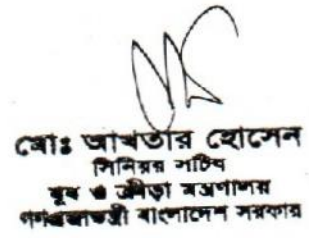 মোঃ আখতার হোসেন
সিনিয়র সচিব
যুব ও ক্রীড়া মন্ত্রণালয়
গণপ্রজাতন্ত্রী বাংলাদেশ সরকার